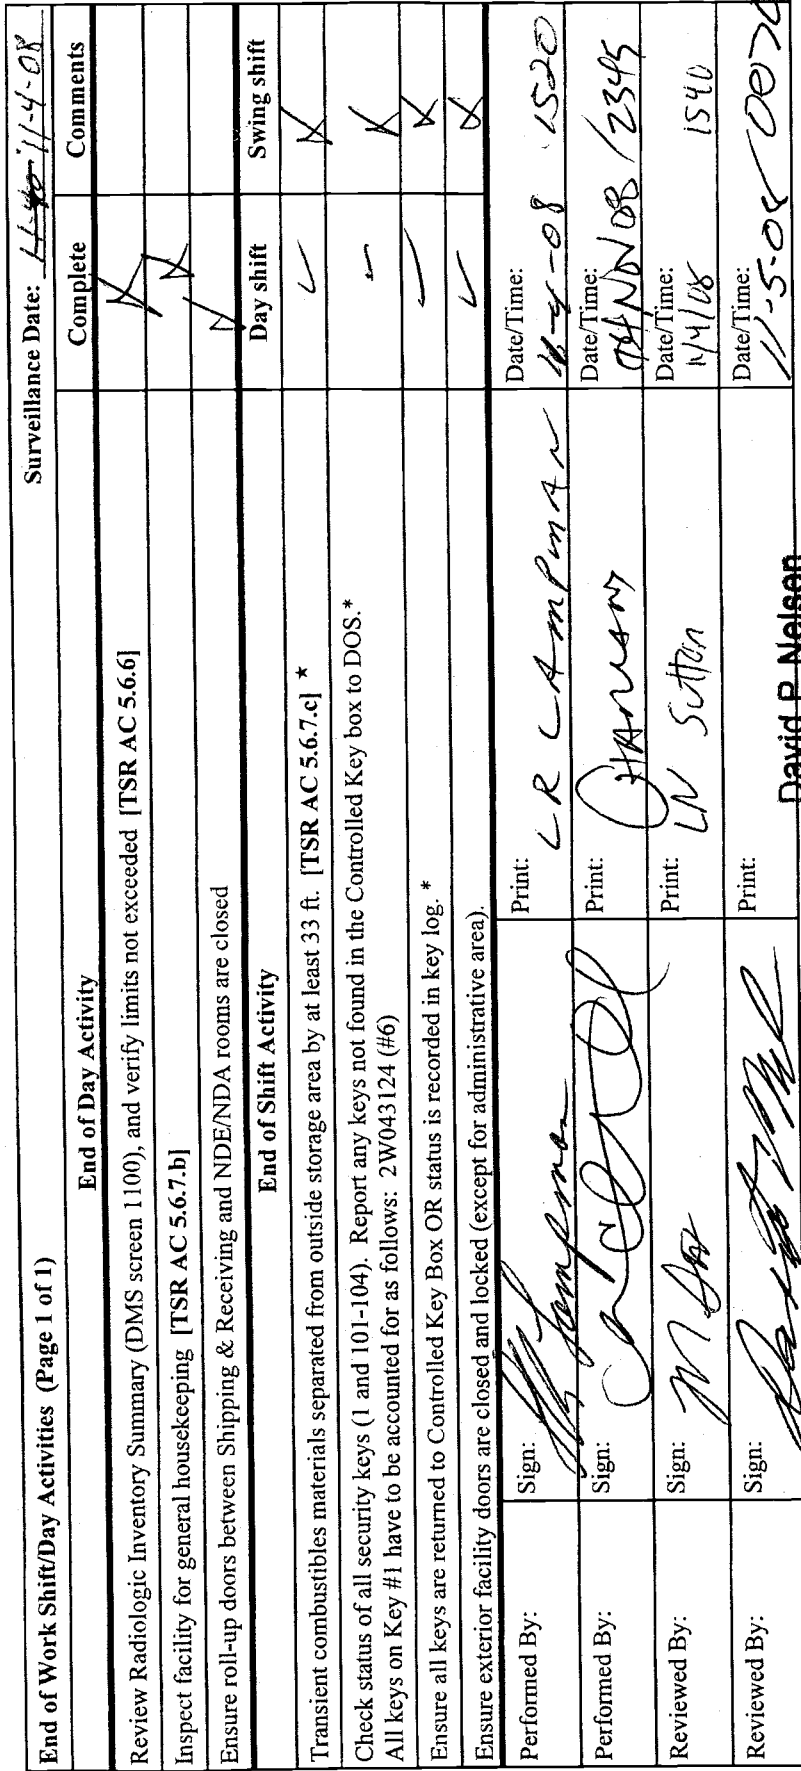 End of Work Shift/Day Activities (Page 1 of 1) Surveillance Date: 11-4-08
End of Day Activity Complete Comments
Review Radiologic Inventory Summary (DMS screen 1100), and verify limits not exceeded [TSR AC 5.6.6]
Inspect facility for general housekeeping [TSR AC 5.6.7.b]
Ensure roll-up doors between Shipping & Receiving and NDE/NDA rooms are closed
End of Shift Activity Day shift Swing shift
Transient combustibles materials separated from outside storage area by at least 33 ft. [TSR AC 5.6.7.c] *
Check status of all security keys (1 and 101-104). Report any keys not found in the Controlled Key box to DOS.*
All keys on Key #1 have to be accounted for as follows: 2W043124 (#6)
Ensure all keys are returned to Controlled Key Box OR status is recorded in key log. *
Ensure exterior facility doors are closed and locked (except for administrative area).
Performed By: Sign: Print: LR LAMPMAN Date/Time: 11-4-08 1520
Performed By: Sign: Print: Date/Time: 04 NOV 08 / 2345
Reviewed By: Sign: Print: LN Sutton Date/Time: 11/4/08 1540
Reviewed By: Sign: Print: David P. Nelson Date/Time: 11-5-08